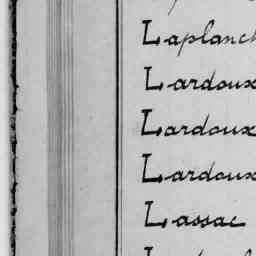 Laplanch
Lardoux
Lardoux
Lardoux
Lassac